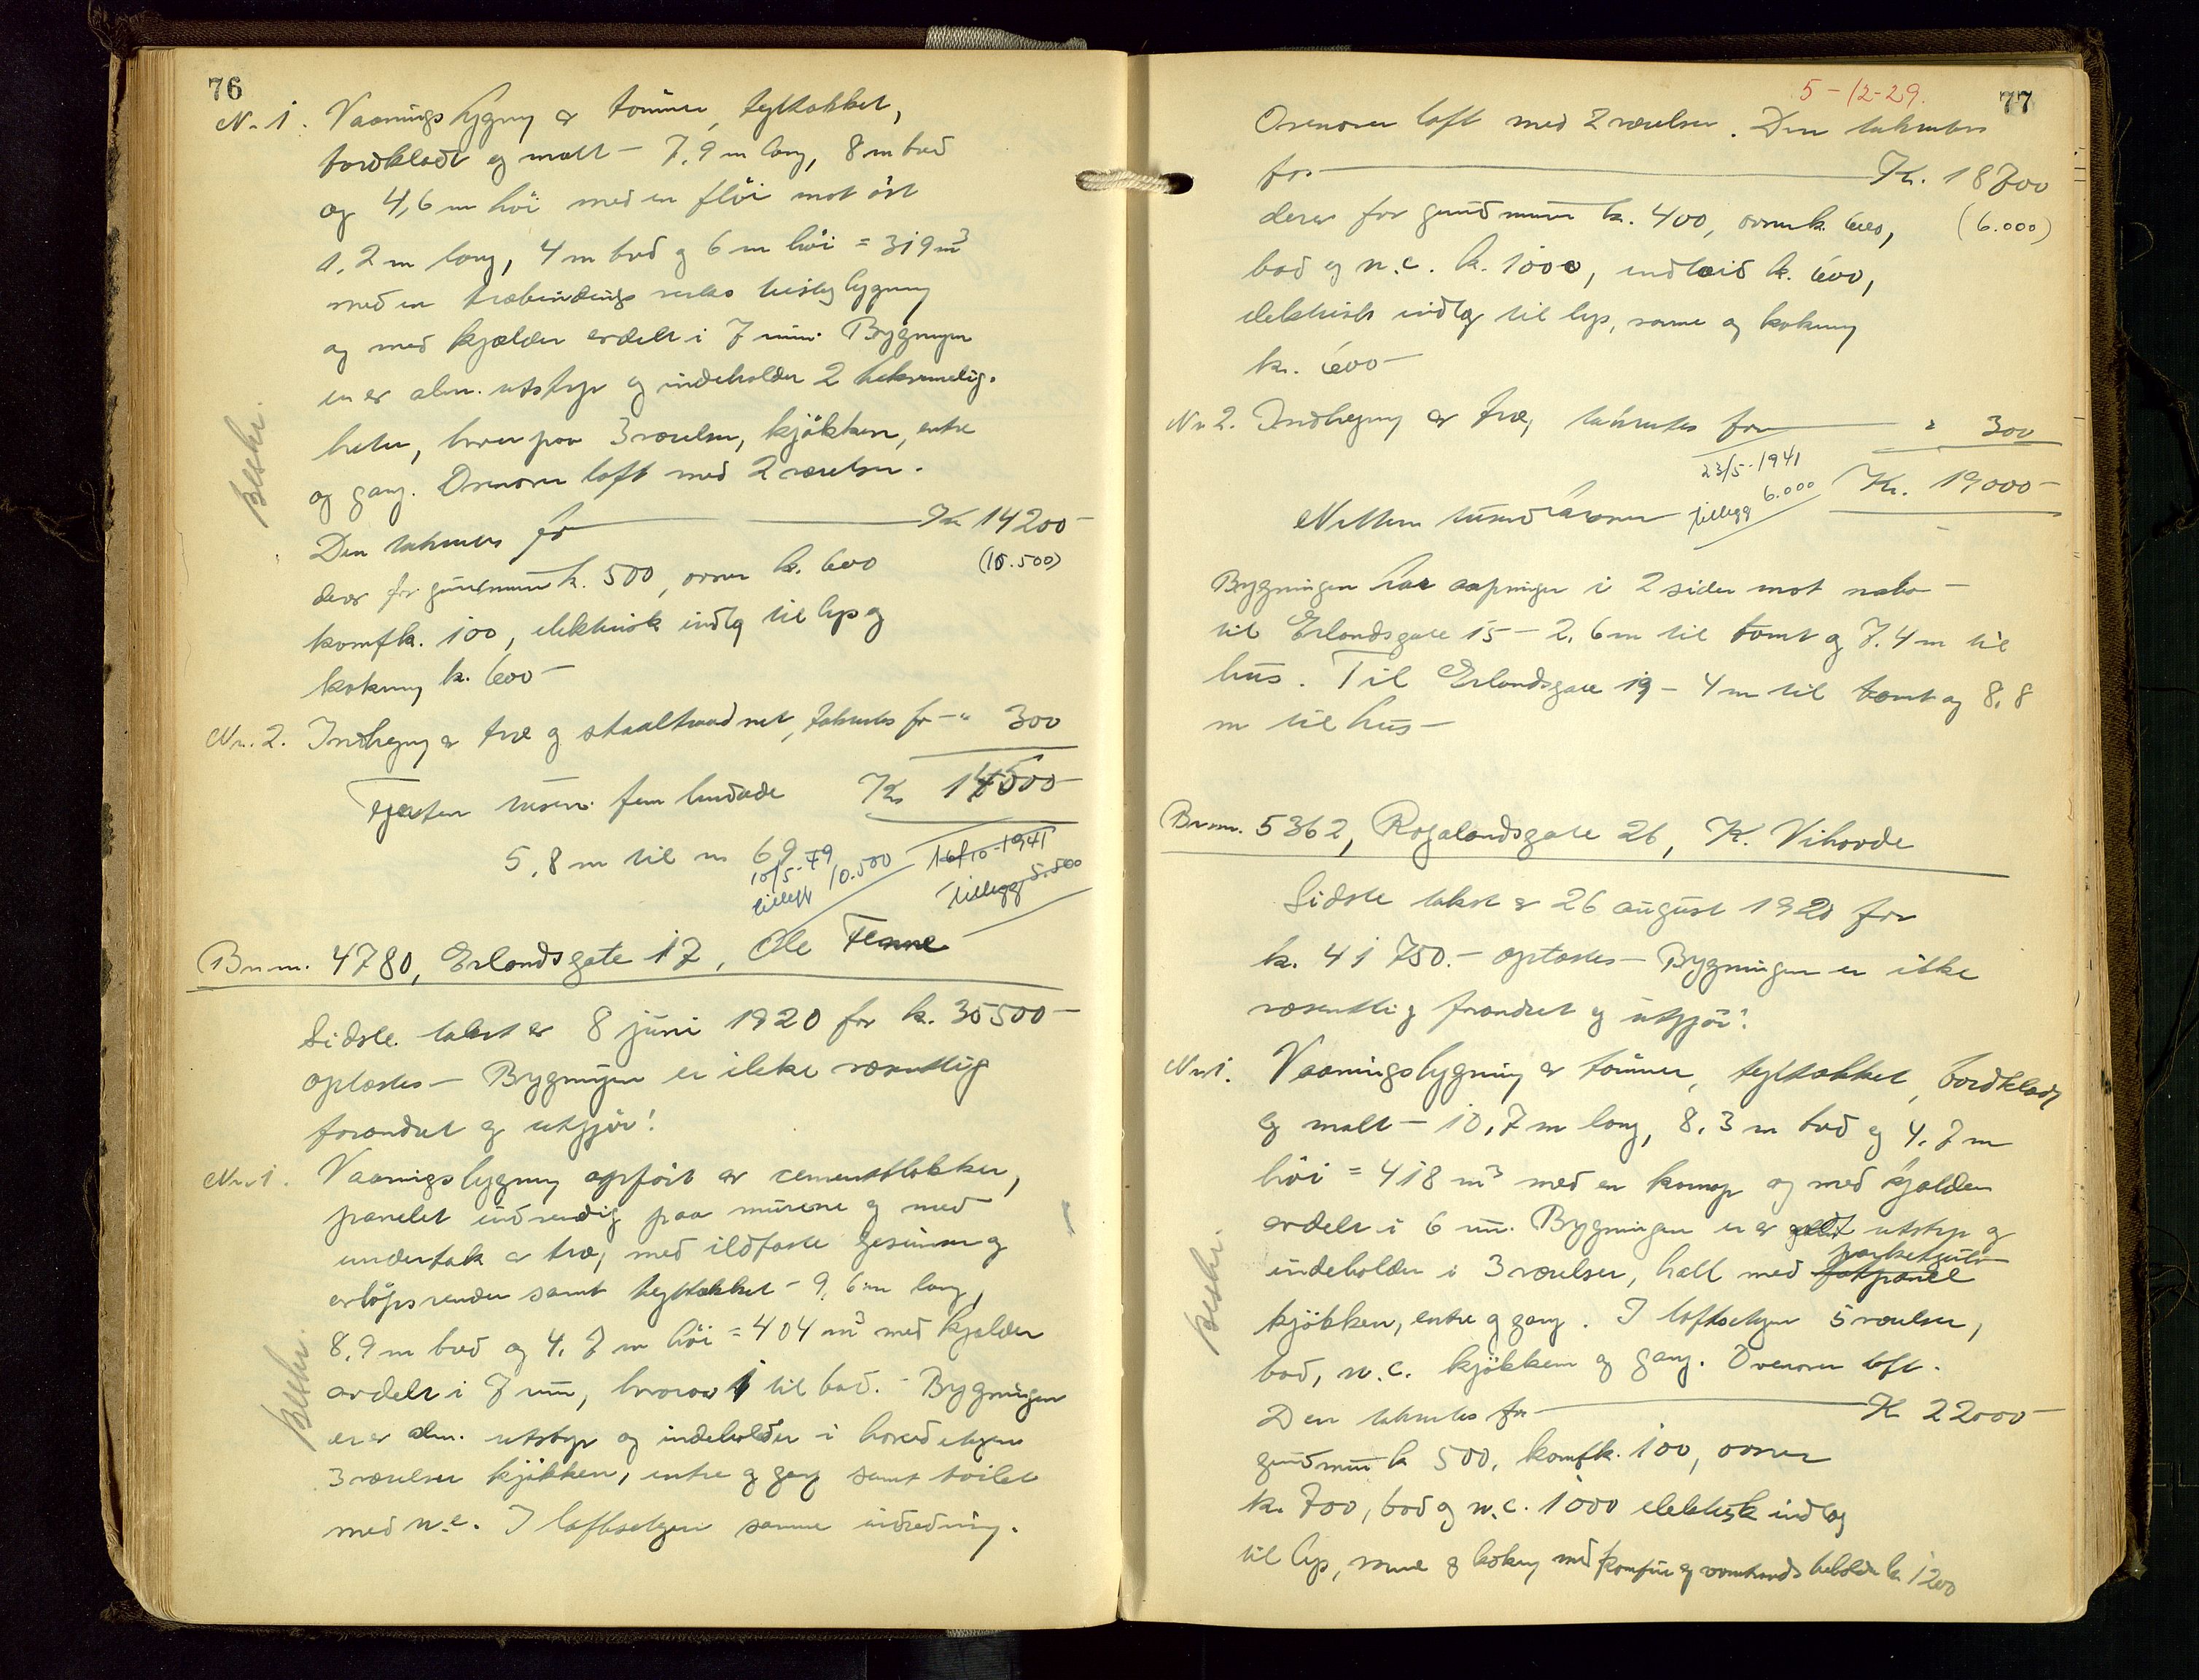 76
Nr. 1. Vaaningsbygning av tømmer, tegltækket,
bordklædt og malt – 7,9 m lang, 8 m bred
og 4,6 m höi med en flöi mot öst
1,2 m lang, 4 m bred og 6 m höi = 319 m³
med en træbindings
og med kjælder avdelt i 7 rum. Bygningen
en er alm. utstyr og indeholder 2 bekvemmelig-
heter, hver paa 3 værelser, kjökken, entre
og gang. Ovenover loft med 2 værelser.
Den takseres for Kr. 14200–
derav for grundmuren k. 500, ovner k. 600 (10.500)
komf k. 100, elektrisk indlæg til lys og
kokning k. 600–
Nr. 2. Indhegning av træ og staaltraadnet, takseres for –" 300
Fjorten tusen fem hundrede Kr. 14500–
5,8 m til nr 69
10/5-49 tillegg 10.500
16/10-1941 Tillegg 5.500
Beskr.
Brnr. 4780, Erlandsgate 17, Ole Tenne
Sidste takst er 8 juni 1920 for k. 35500–
optoges – Bygningen er ikke væsentlig
forandret og utgjör:
Nr. 1. Vaaningsbygning opfört av cementblokker,
panelet indvendig paa murene og med
undertak av træ, med ildfaste gesimser og
avlöpsrender samt tegltækket – 9,6 m lang,
8,9 m bred og 4,7 m höi = 404 m³ med kjælder
avdelt i 7 rum, hvorav 1 til bad. – Bygningen
er av alm. utstyr og indeholder i hovedetagen
3 værelser kjökken, entre og gang samt toilet
med w.c. I loftsetagen samme indredning.
Beskr.
5-12-29.
77
Ovenover loft med 2 værelser. Den takseres
for Kr. 18700
derav for grundmuren k. 400, ovner k. 600, (6.000)
bad og w.c. k. 1000, k. 600,
elektrisk indlæg til lys, varme og kokning
k. 600–
Nr. 2. Indhegning av træ, takseres for " 300
Kr. 19000–
Nitten tusen kroner
23/5-1941 tillegg 6.000
Bygningen har aapninger i 2 sider mot nabo –
til Erlandsgate 15 – 2,6 m til tomt og 7,4 m til
hus. Til Erlandsgate 19 – 4 m til tomt og 8,8
m til hus –
Brnr. 5362, Rogalandsgate 26, K. Vihovde
Sidste takst er 26 august 1920 for
k. 41750.– optoges – Bygningen er ikke
væsentlig forandret og utgjör:
Nr. 1. Vaaningsbygning av tömmer, tegltækket, bordklædt
og malt – 10,7 m lang, 8,3 m bred og 4,7 m
höi = 418 m³ med en kvist og med kjælder
avdelt i 6 rum. Bygningen er av godt utstyr og
indeholder i 3 værelser, hall med parketgulv
kjökken, entre og gang. I loftsetagen 5 værelser,
bad, w.c. kjökken og gang. Ovenover loft.
Den takseres for K 22000–
grundmur k 500, komf k. 100, ovner
k. 700, bad og w.c. 1000 elektrisk indlæg
til lys, varme og kokning med komfur og varmtvandsbeholder k. 1200
Beskr.